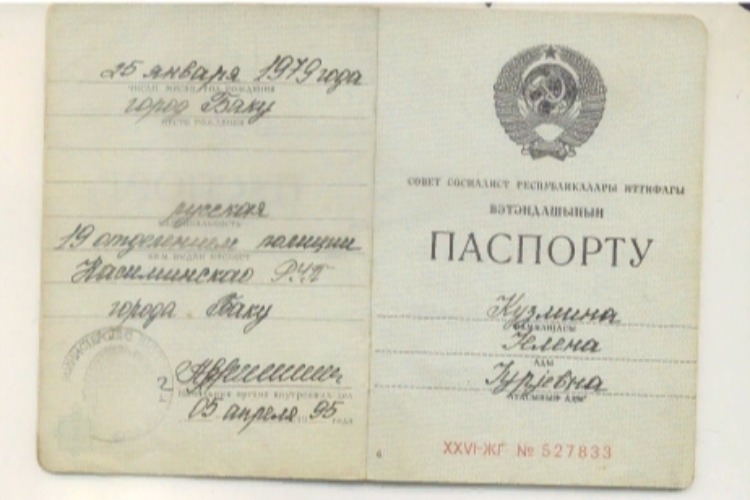 25 января 1979 года
число, месяц, год рождения
город Баку
место рождения
русская
национальность
19 отделением полиции
кем выдан паспорт
Насиминскао РУП
города Баку
05 апреля 1995 года
СОВЕТ СОСИАЛИСТ РЕСПУБЛИКАЛАРЫ ИТТИФАГЫ
ВƏТƏНДАШЫНЫН
ПАСПОРТУ
Кузмина
ФАМИЛИЈАСЫ
Јелена
АДЫ
Јурјевна
АТАСЫНЫН АДЫ
6
XXVI-ЖГ № 527833